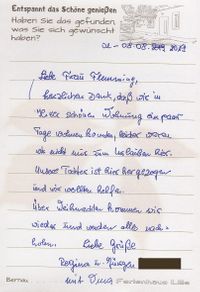 Entspannt das Schöne genießen
Haben Sie das gefunden,
was Sie sich gewünscht
haben?
02.-08.08.2019
Liebe Frau Flemming,
herzlichen Dank, daß wir in
Ihrer schönen Wohnung ein paar
Tage wohnen konnten, leider waren
wir nicht nur zum Urlauben hier.
Unsere Tochter ist hier her gezogen
und wir wollten helfen.
Über Weihnachten kommen wir
wieder und werden alles nach-
holen. Liebe Grüße
Regina u. Jürgen
mit Oma
Bernau
Ferienhaus Lilie